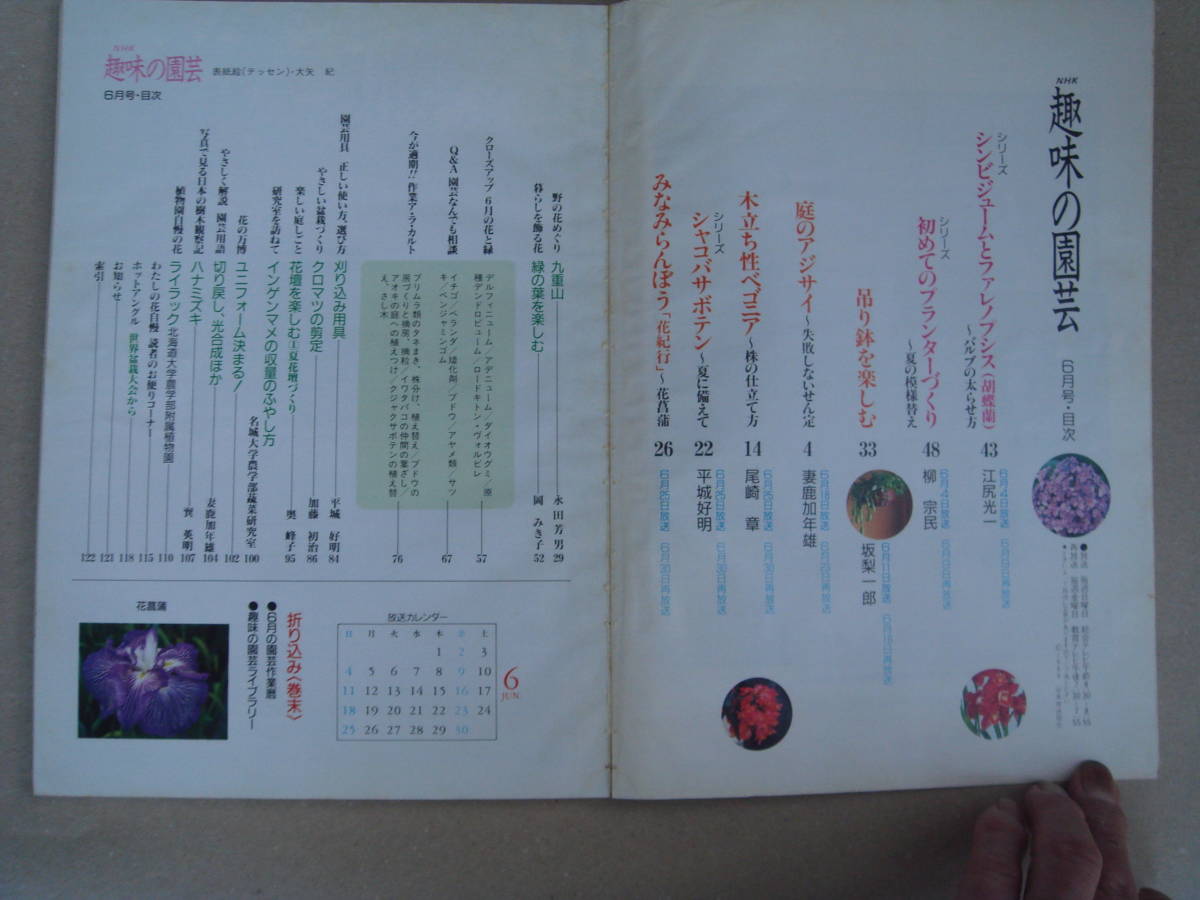 NHK
趣味の園芸
6月号・目次
シリーズ
シンビジュームとファレノプシス(胡蝶蘭)
〜バルブの太らせ方
43
6月4日放送
江尻光一
シリーズ
初めてのプランターづくり
〜夏の模様替え
48
6月4日放送
柳 宗民
吊り鉢を楽しむ
33
6月11日放送
坂梨一郎
庭のアジサイ〜失敗しないせん定
4
6月18日放送
妻鹿加年雄
木立ち性ベゴニア〜株の仕立て方
14
6月25日放送 6月30日再放送
尾崎 章
シリーズ
シャコバサボテン〜夏に備えて
22
6月25日放送 6月30日再放送
平城好明
みなみらんぼう「花紀行」〜花菖蒲
26
6月25日放送 6月30日再放送
NHK
趣味の園芸
表紙絵(テッセン)・大矢 紀
6月号・目次
野の花めぐり 九重山 永田芳男 29
暮らしを飾る花 緑の葉を楽しむ 岡 みき子 52
クローズアップ 6月の花と緑
デルフィニューム/アデニューム/ダイオウグミ/原
種デンドロビューム/ロードキトン・ヴォルビレ
57
Q&A 園芸なんでも相談
イチゴ/ベランダ/矮化剤/ブドウ/アヤメ類/サツ
キ/ベンジャミンゴム
67
今が適期!! 作業ア・ラ・カルト
プリムラ類のタネまき、株分け、植え替え/ブドウの
房づくりと摘房、摘粒/イワタバコの仲間の葉ざし/
アオキの庭への植えつけ/クジャクサボテンの植え替
え、さし木
76
園芸用具 正しい使い方、選び方 刈り込み用具 平城 好明 84
やさしい盆栽づくり クロマツの剪定 加藤 初治 86
楽しい庭しごと 花壇を楽しむ①夏花壇づくり 奥 峰子 95
研究室を訪ねて インゲンマメの収量のふやし方 名城大学農学部蔬菜研究室 100
花の万博 ユニフォーム決まる! 102
やさしく解説 園芸用語 切り戻し、光合成ほか 妻鹿加年雄 104
写真で見る日本の樹木観察記 ハナミズキ 巽 英明 107
植物園自慢の花 ライラック 北海道大学農学部附属植物園 110
わたしの花自慢 読者のお便りコーナー 115
ホットアングル 世界盆栽大会から 118
お知らせ 121
索引 122
花菖蒲
折り込み〈巻末〉
●6月の園芸作業暦
●趣味の園芸ライブラリー
放送カレンダー
日 月 火 水 木 金 土
1 2 3
4 5 6 7 8 9 10
11 12 13 14 15 16 17
18 19 20 21 22 23 24
25 26 27 28 29 30
6
JUN.